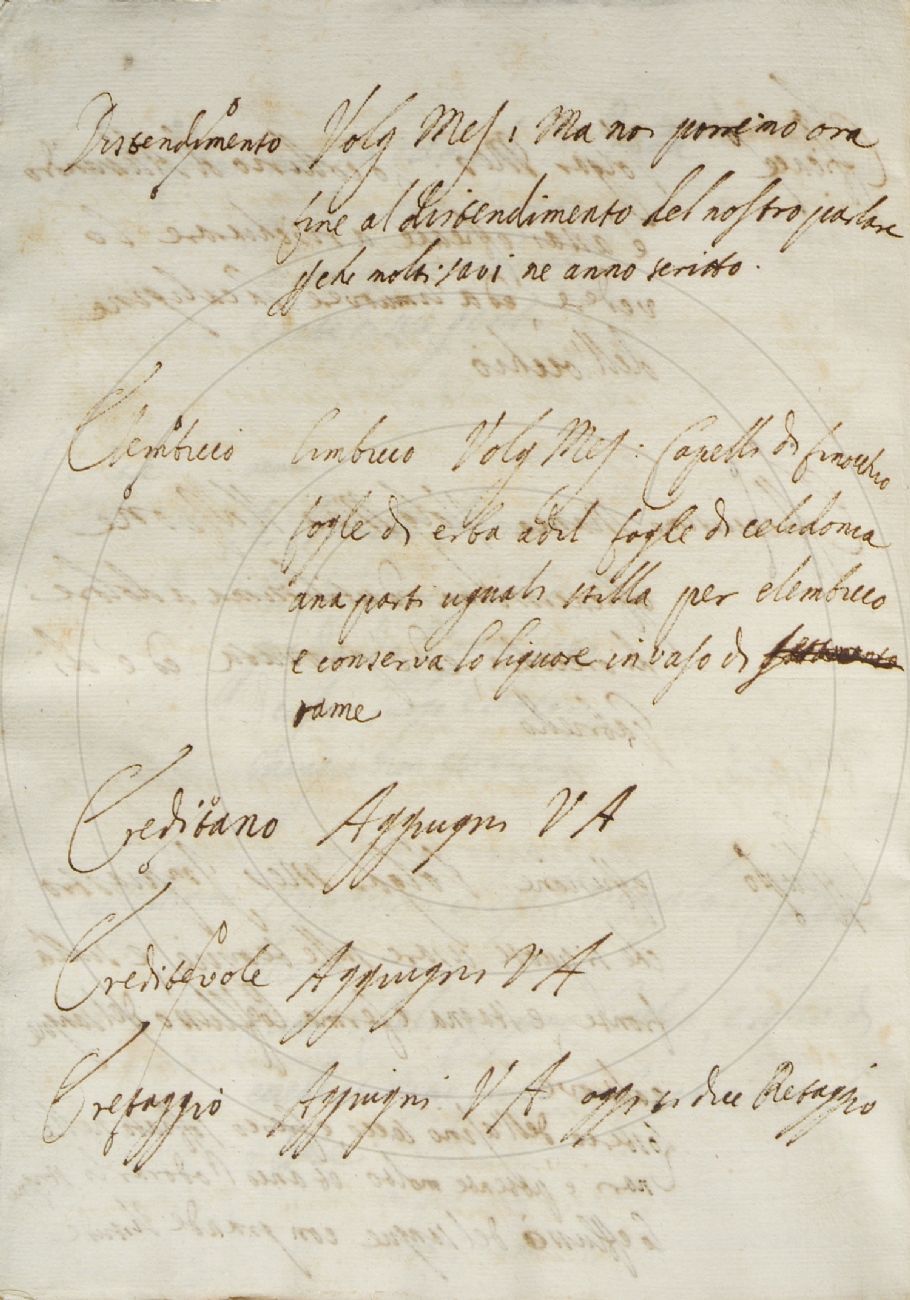 Distendimento Volg Mes: Ma noi porremo ora
fine al distendimento del nostro parlare
che molti savi ne anno scritto.
Elembicco limbicco Volg Mes: Capelli di finocchio
fogle di erba a dil fogle di celidonia
ana parti uguali stilla per elembicco
e conserva lo liquore in vaso di
rame
Ereditano Aggiugni V A
Ereditevole Aggiugni V A
Eretaggio Aggiugni V A oggi si dice Retaggio